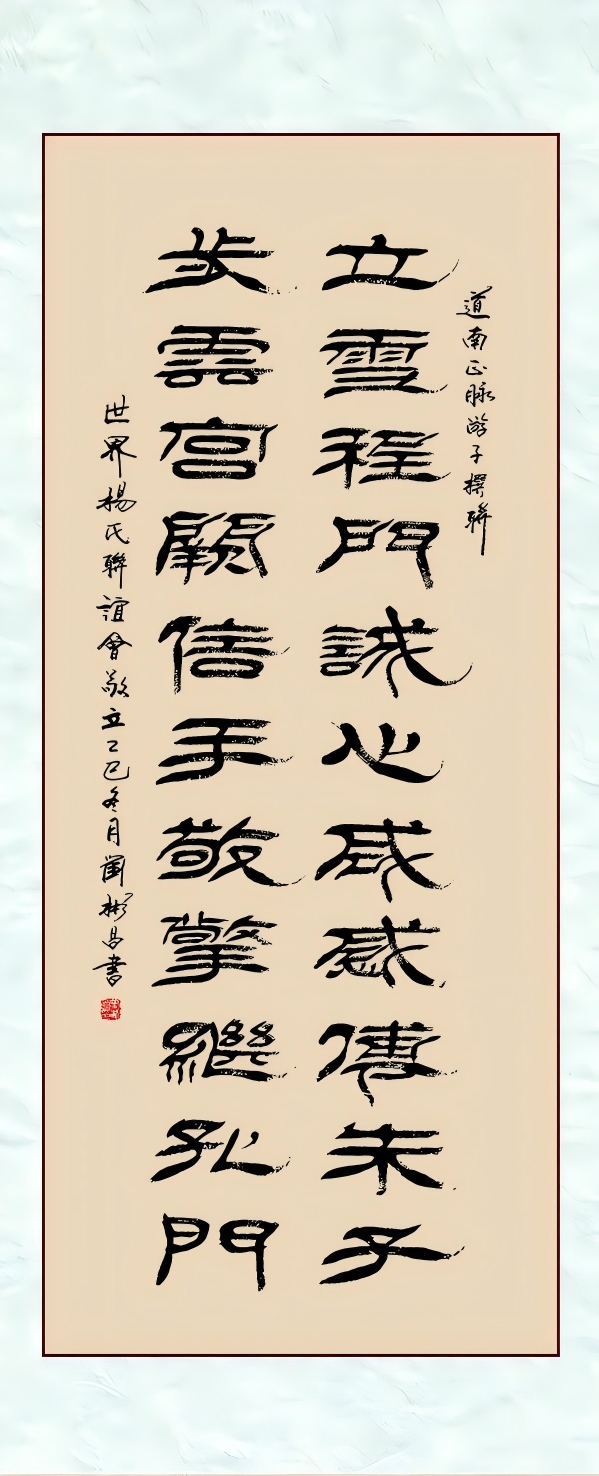 道南正脉游子撰聯
立雪程門誠心咸感傳朱子
步雲宫闕信手敬擎繼孔門
世界楊氏聯誼會敬立乙巳冬月蘭彬昌書